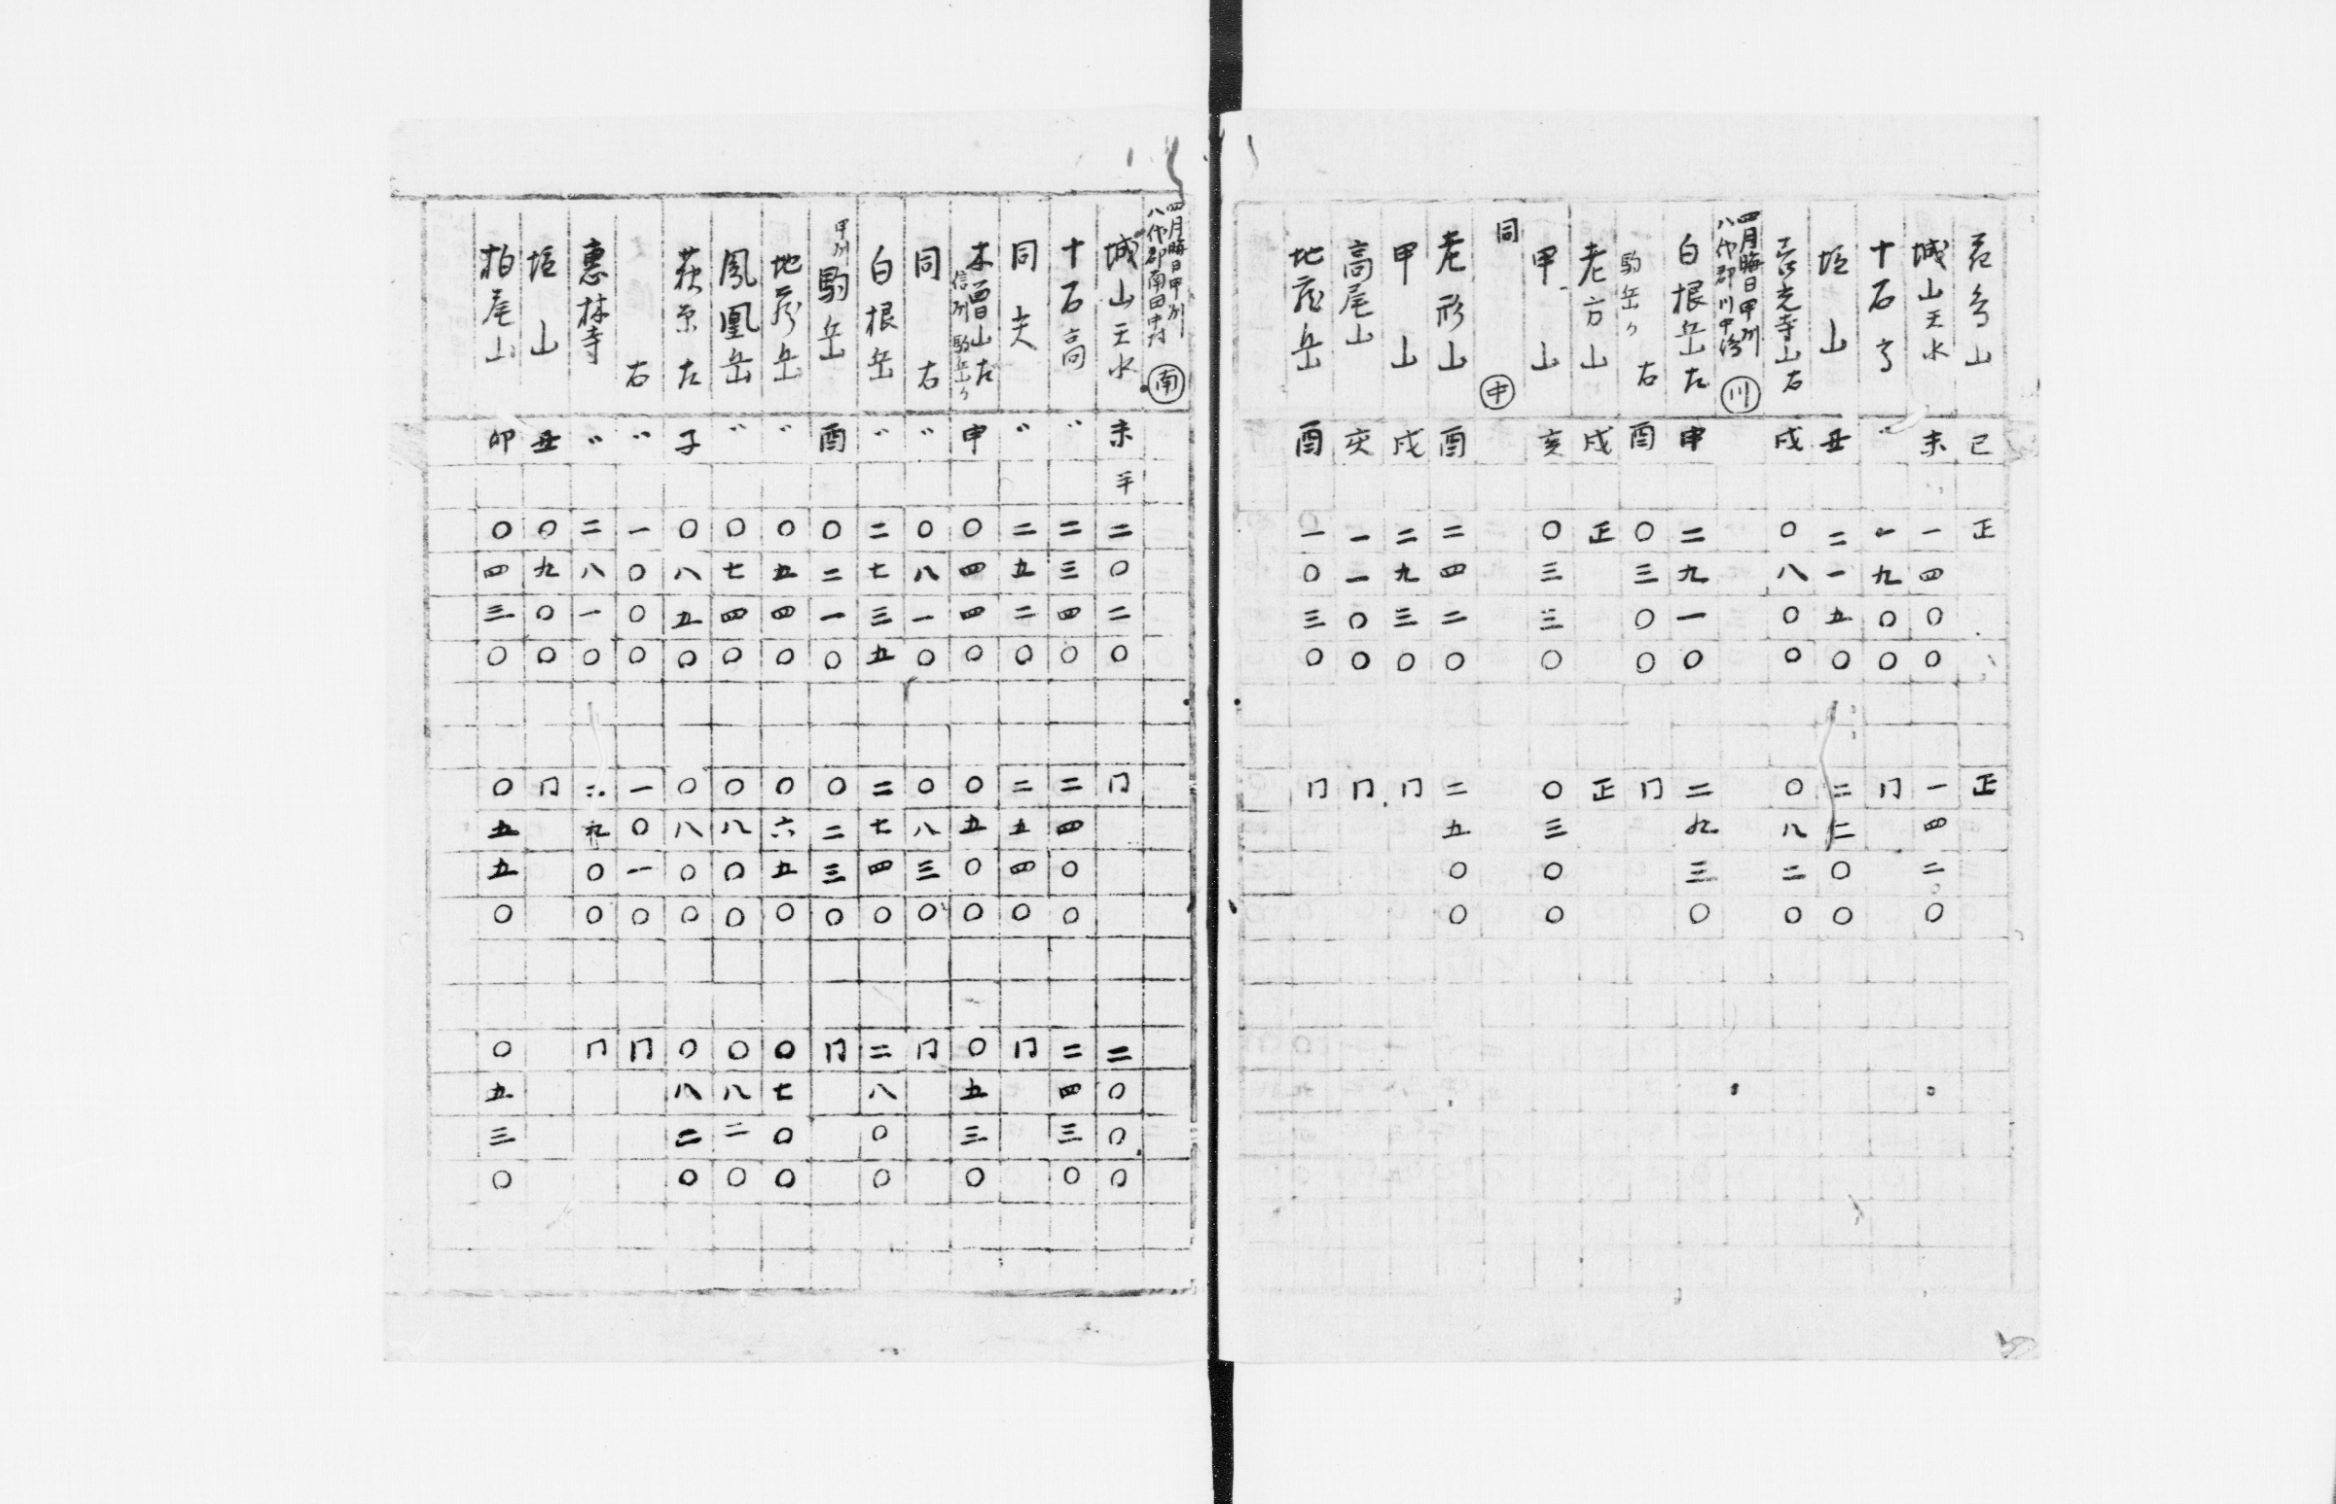 巳 正 正
城山天水 未 一四〇〇 一四二〇
十石 〃 一九〇〇 冂
塩山 丑 二一五〇 二二〇〇
善光寺山右 戌 〇八〇〇 〇八二〇
四月晦日甲州
八代郡川中 川
白根岳左 申 二九一〇 二九三〇
駒岳ヶ 右 酉 〇三〇〇 冂
老方山 戌 正 正
甲山 亥 〇三三〇 〇三〇〇
同 中
老形山 酉 二四二〇 二五〇〇
甲山 戌 二九三〇 冂
高尾山 亥 一一〇〇 冂
地蔵岳 酉 一〇三〇 冂
四月晦日甲州
八代郡南田中村 南
城山天水 未 半 二〇二〇 冂 二〇〇〇
十石高 〃 二三四〇 二四〇〇 二四三〇
同 夫 〃 二五二〇 二五四〇 冂
木曽山左 信州駒岳ヶ 申 〇四四〇 〇五〇〇 〇五三〇
同 右 〃 〇八一〇 〇八三〇 冂
白根岳 〃 二七三五 二七四〇 二八〇〇
甲州駒岳 酉 〇二一〇 〇二三〇 冂
地蔵岳 〃 〇五四〇 〇六五〇 〇七〇〇
鳳凰岳 〃 〇七四〇 〇八〇〇 〇八二〇
萩原左 子 〇八五〇 〇八〇〇 〇八二〇
右 〃 一〇〇〇 一〇一〇 冂
惠林寺 〃 二八一〇 二九〇〇 冂
塩山 丑 〇九〇〇 冂
柏尾山 卯 〇四三〇 〇五五〇 〇五三〇